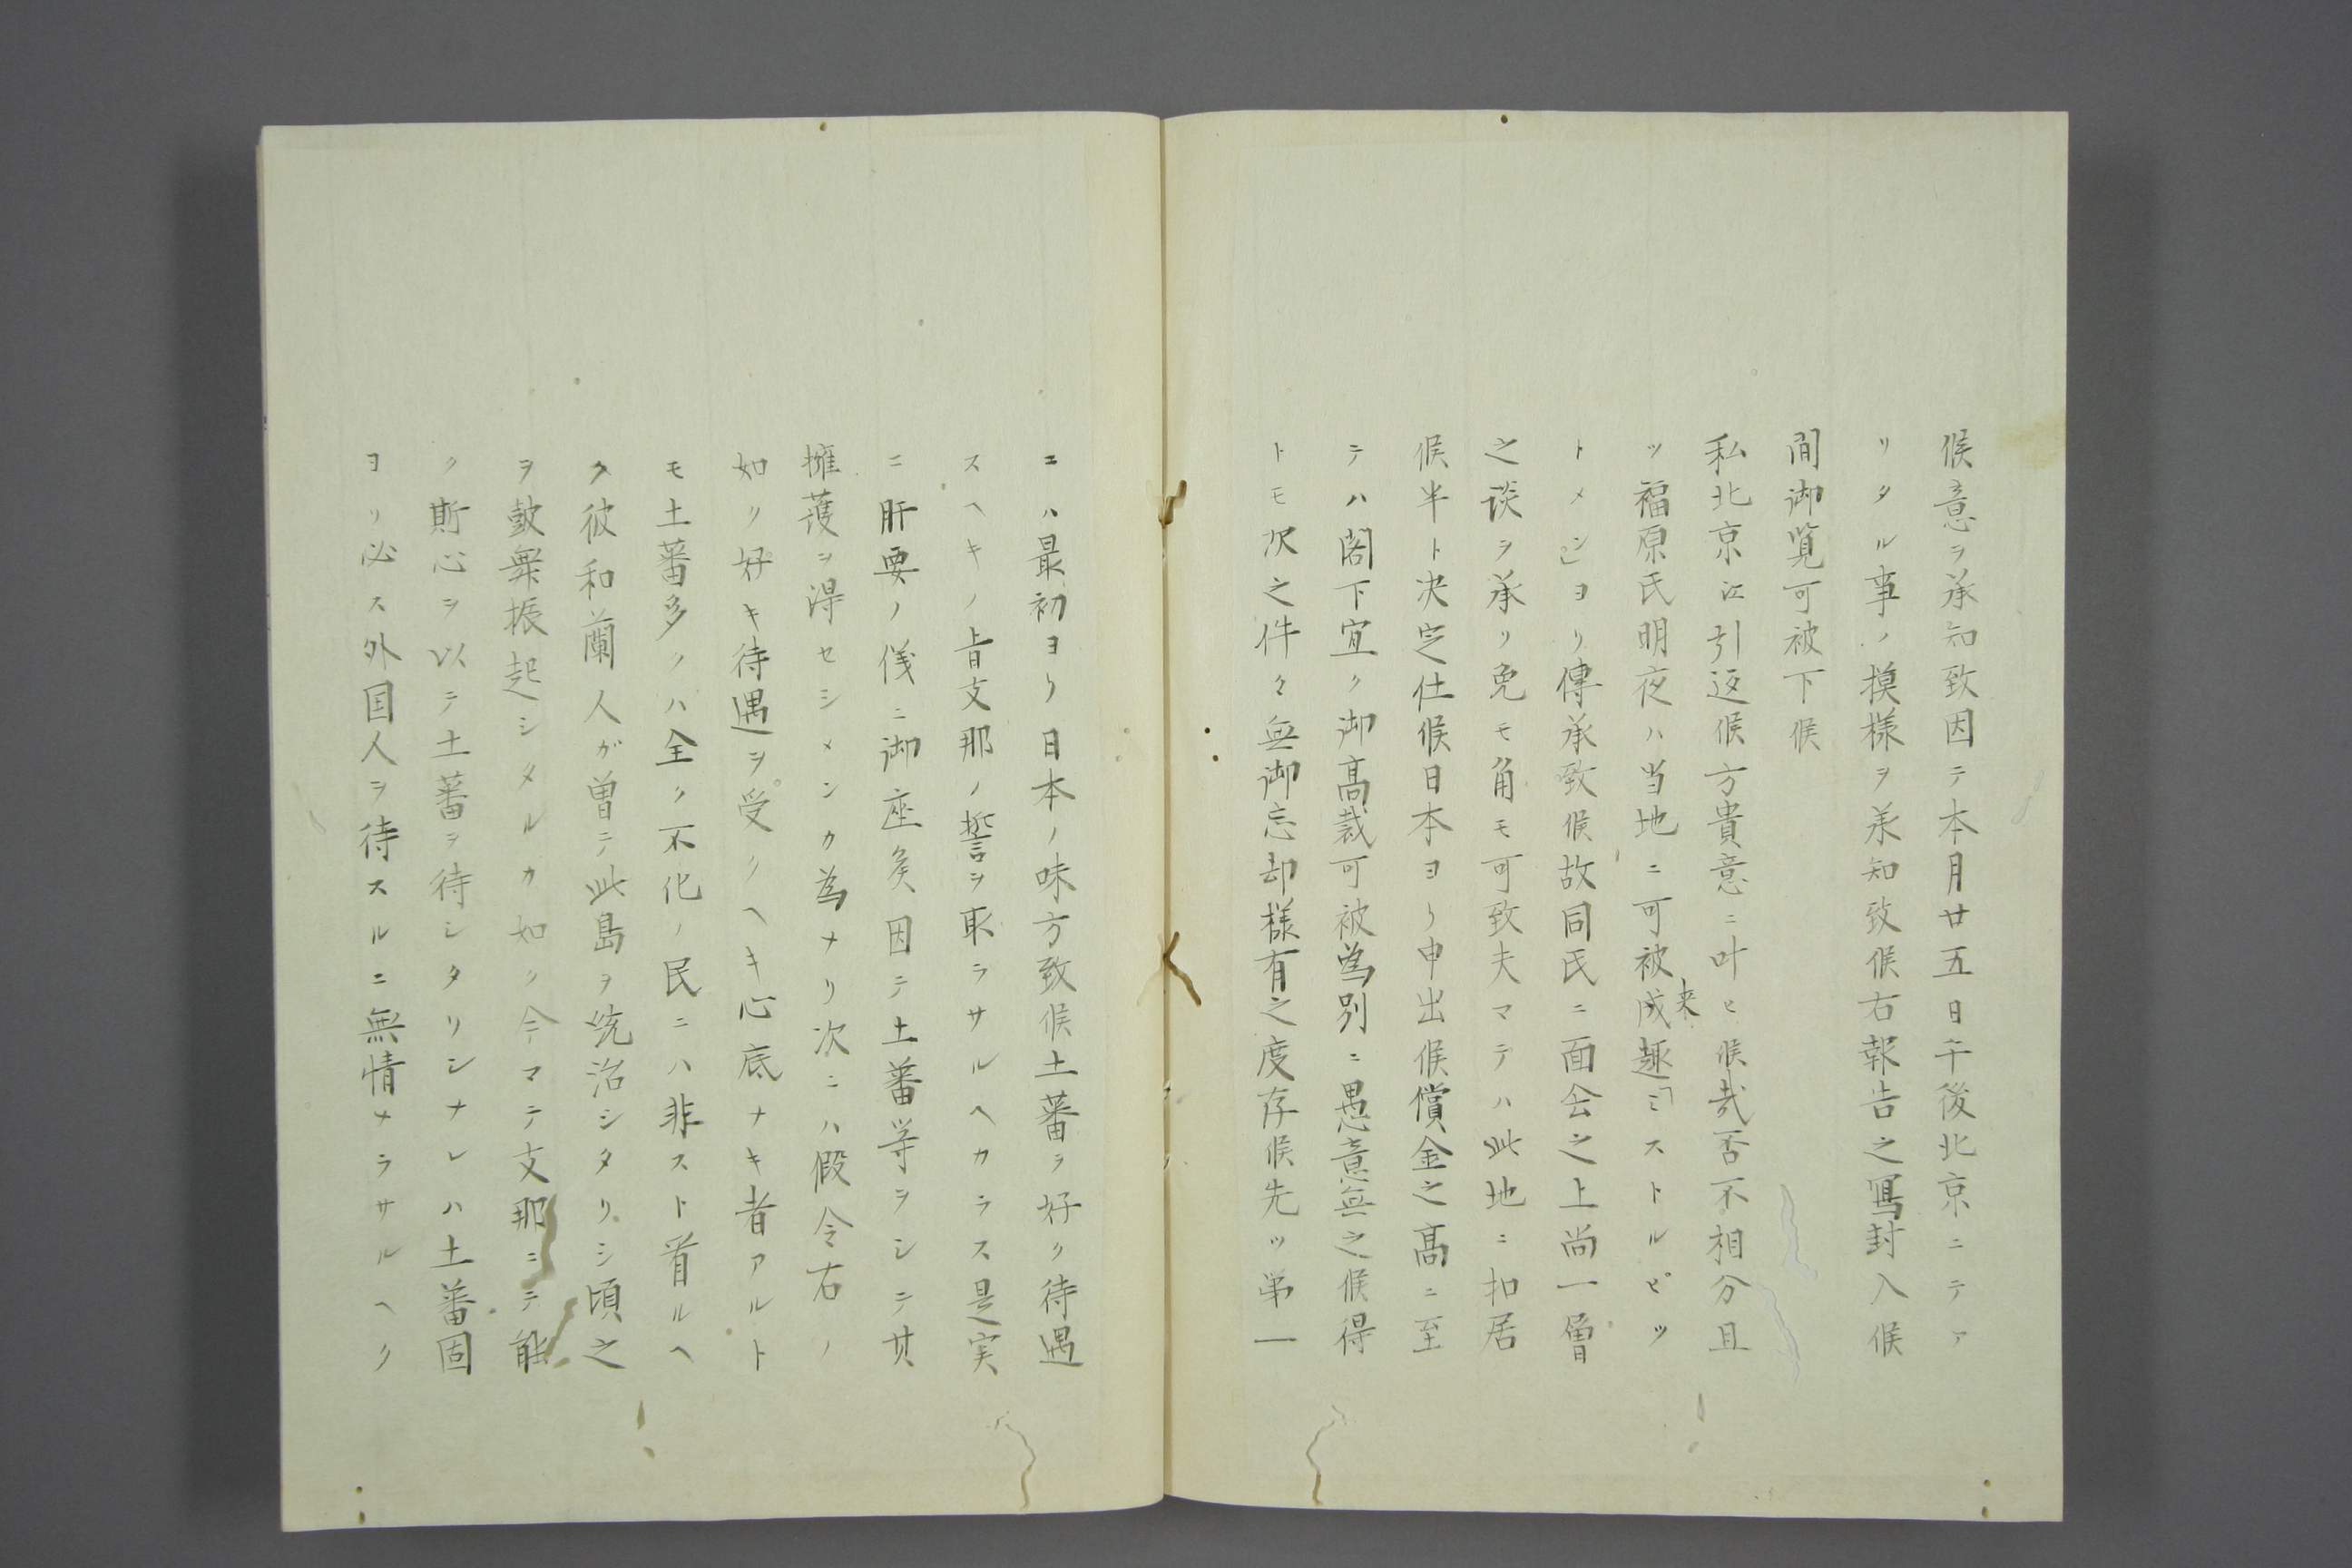 候意ヲ承知致因テ本月廿五日午後北京ニテア
リタル事ノ摸様ヲ承知致候右報告之冩封入候
間御覧可被下候
私北京江引返候方貴意ニ叶ヒ候哉否不相分且
ツ福原氏明夜ハ当地ニ可被成来趣「ミストルピツ
トメン」ヨリ傳承致候故同氏ニ面会之上尚一層
之談ヲ承リ免モ角モ可致夫マテハ此地ニ扣居
候半ト决定仕候日本ヨリ申出候償金之髙ニ至
テハ閣下宜ク御髙裁可被為別ニ愚意無之候得
トモ次之件々無御忘却様有之度存候先ツ第一
ニハ最初ヨリ日本ノ味方致候土蕃ヲ好ク待遇
スヘキノ旨支那ノ誓ヲ取ラサルヘカラス是実
ニ肝要ノ儀ニ御座矣因テ土蕃等ヲシテ其
擁護ヲ得セシメンカ為ナリ次ニハ假令右ノ
如ク好キ待遇ヲ受クヘキ心底ナキ者アルト
モ土蕃多クハ全ク不化ノ民ニハ非スト首ルヘ
ク彼和蘭人が曽テ此島ヲ統治シタリシ頃之
ヲ鼓舞振起シタルカ如ク今マテ支那ニテ能
ク斯心ヲ以テ土蕃ヲ待シタリシナレハ土蕃固
ヨリ必ス外国人ヲ待スルニ無情ナラサルヘク